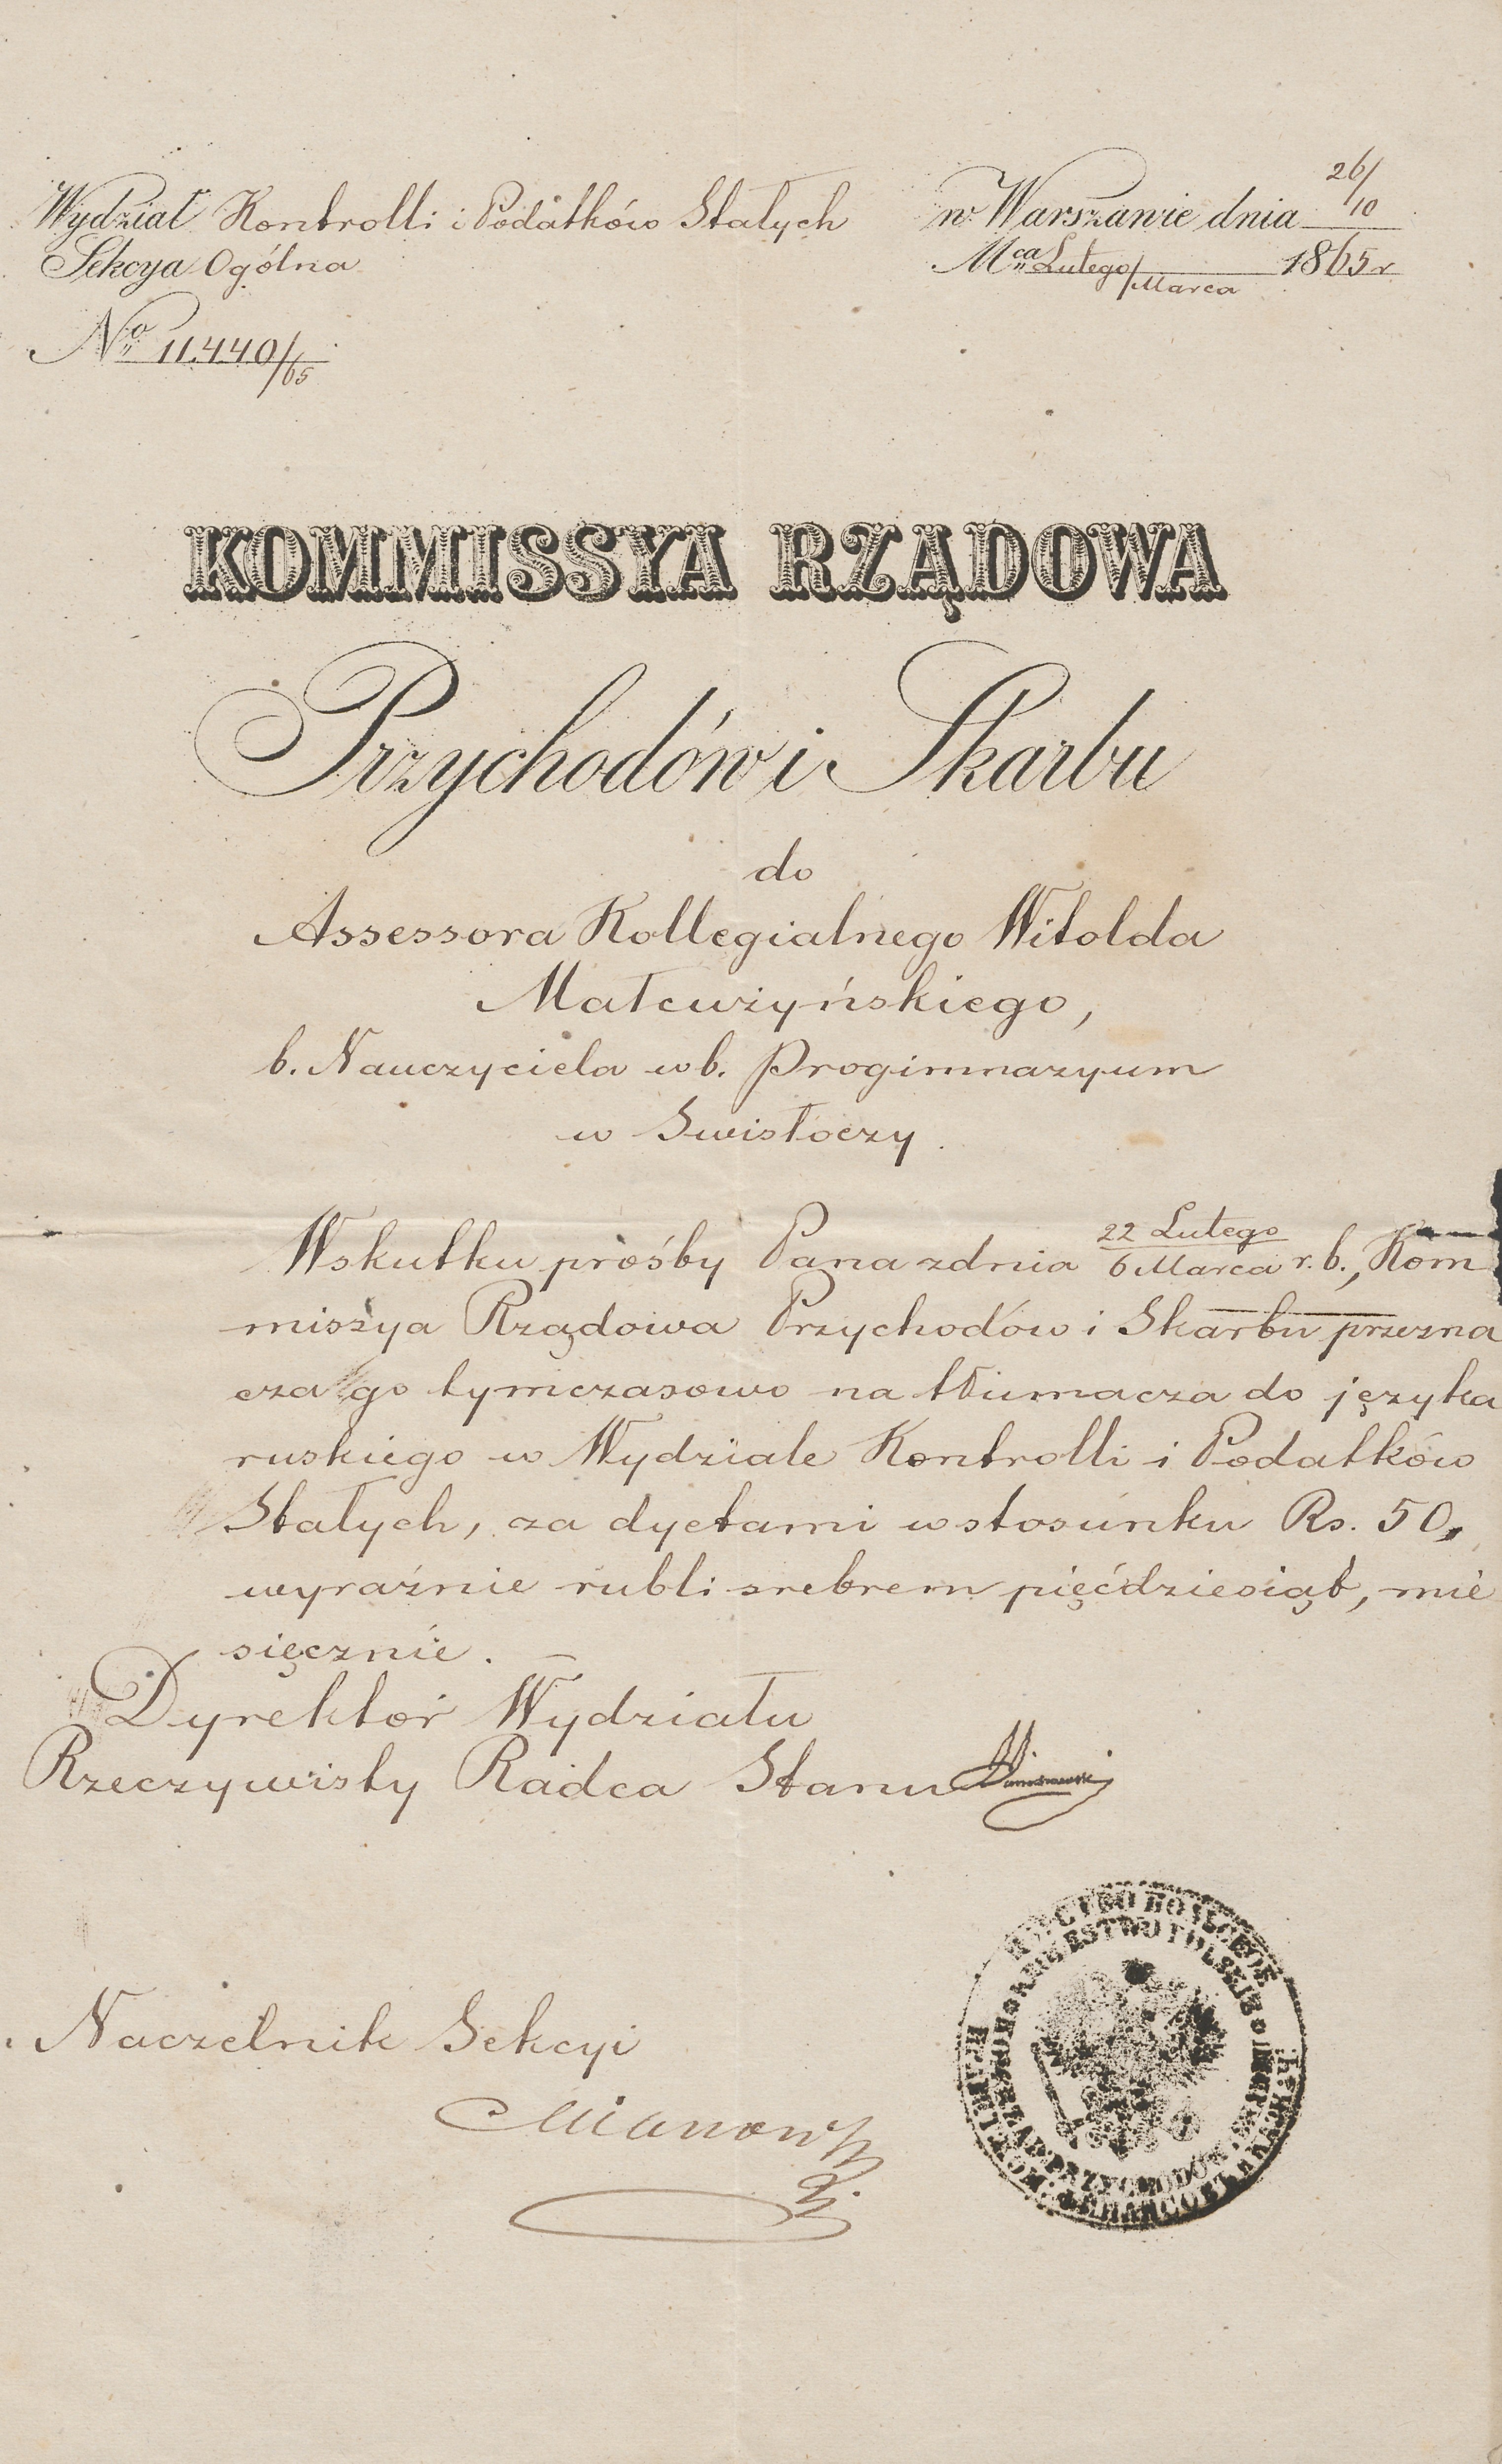 Wydział Kontrolli i Podatków Stałych
Sekcya Ogólna
No 11.440/65
w Warszawie dnia 26/10
Mca Lutego/Marca 1865 r
KOMMISSYA RZĄDOWA
Przychodów i Skarbu
do
Assessora Kollegialnego Witolda
Małcużyńskiego,
b. Nauczyciela w b. Progimnazyum
w Swisłoczy.
Wskutku prośby Pana z dnia 22 Lutego/6 Marca r. b., Kom
missya Rządowa Przychodów i Skarbu przezna
cza go tymczasowo na tłumacza do języka
ruskiego w Wydziale Kontrolli i Podatków
Stałych, za dyetami w stosunku Rs. 50,
wyraźnie rubli srebrem pięćdziesiąt, mie
sięcznie.
Dyrektor Wydziału
Rzeczywisty Radca Stanu
Naczelnik Sekcyi
Mianowski